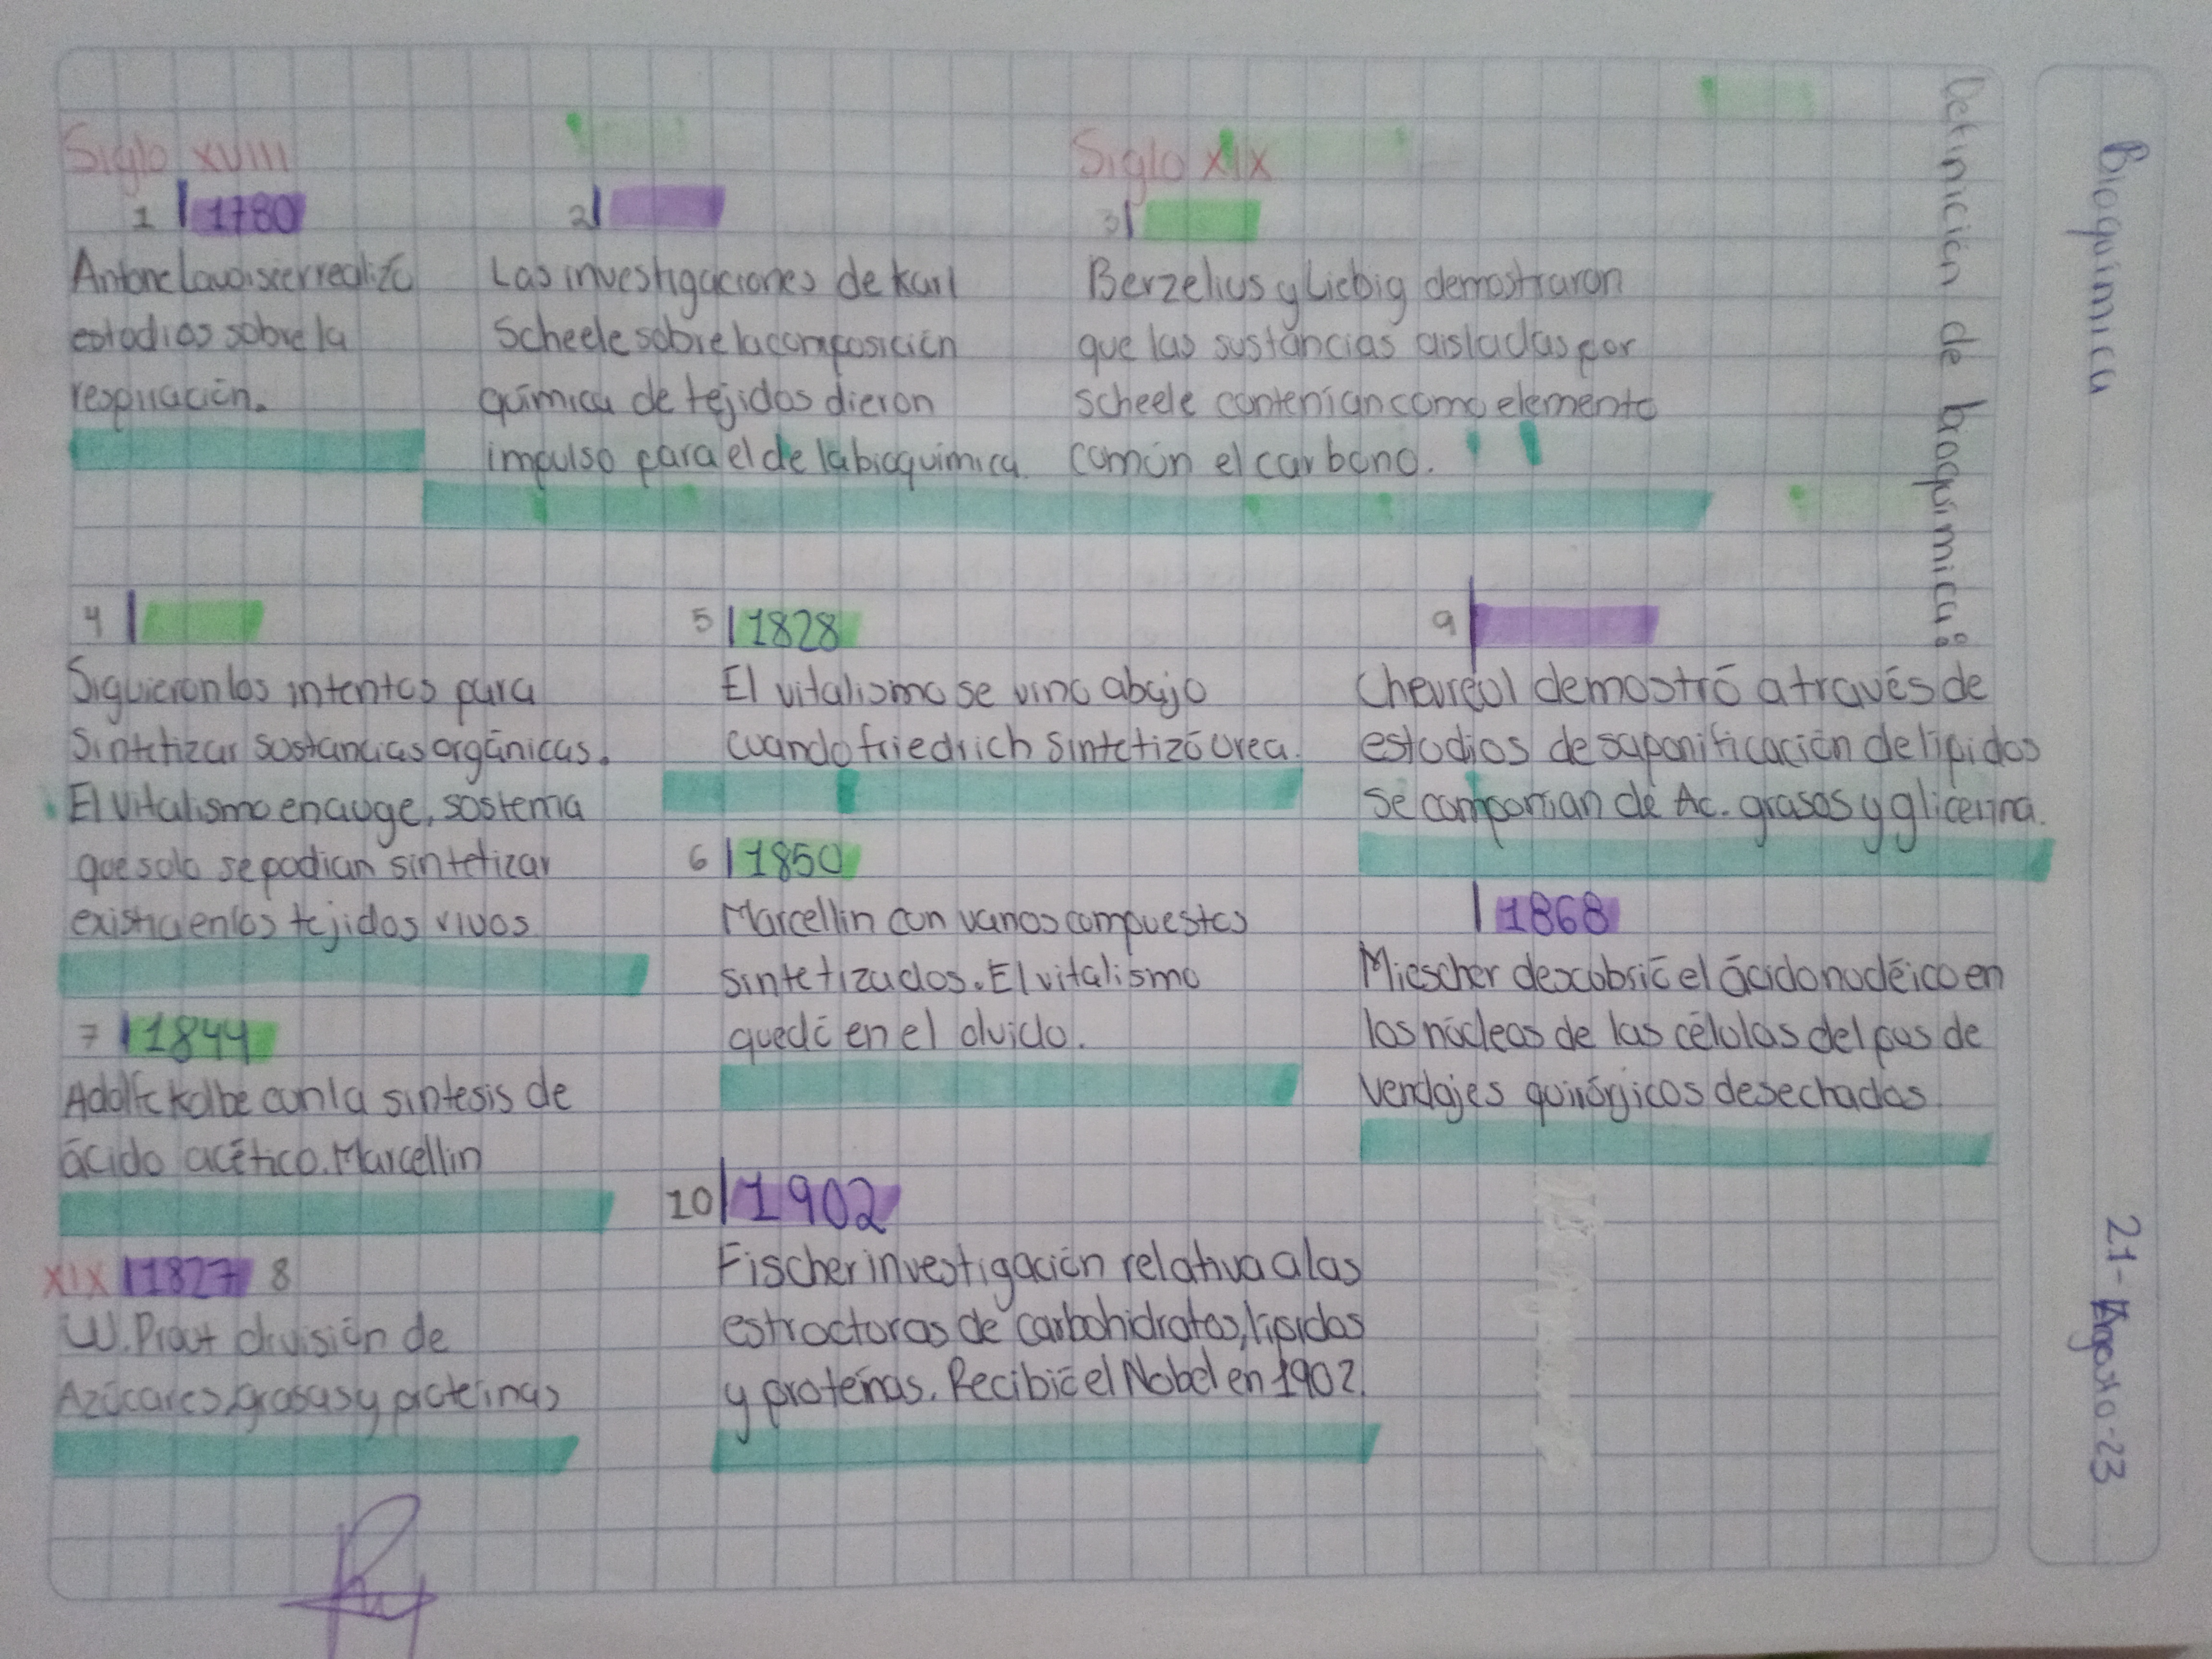 Bioquímica
21-Agosto-23
Definición de bioquímica:
Siglo XVIII
1 1780
Antone Lavoisier realizó
estudios sobre la
respiración.
2
Las investigaciones de Karl
Scheele sobre la composición
química de tejidos dieron
impulso para el de la bioquímica.
Siglo XIX
3
Berzelius y Liebig demostraron
que las sustancias aisladas por
scheele contenían como elemento
común el carbono.
4
Siguieron los intentos para
Sintetizar sustancias orgánicas.
El Vitalismo en auge, sostenia
que solo se podian sintetizar
existia en los tejidos vivos
5 1828
El vitalismo se vino abajo
cuando friedrich sintetizó urea.
6 1850
Marcellin con varios compuestos
sintetizados. El vitalismo
quedó en el olvido.
7 1844
Adolfc Kolbe con la sintesis de
ácido acético. Marcellin
XIX 1827 8
W. Prout división de
Azúcares, grasas y proteínas
9
Chevreul demostró a través de
estudios de saponificación de lípidos
se componian de Ac. grasos y glicerina.
1868
Miescher descubrió el ácido nucléico en
los núcleos de las células del pus de
vendajes quirúrjicos desechados
10 1902
Fischer investigación relativa a las
estructuras de carbohidratos, lípidos
y proteínas. Recibió el Nobel en 1902.